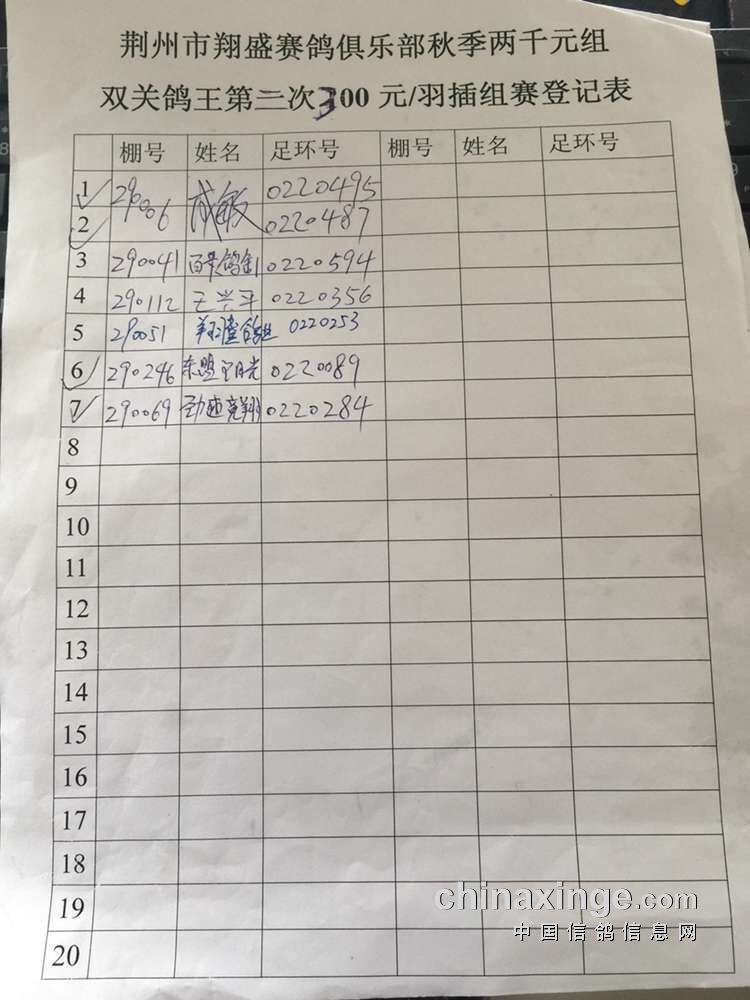 荆州市翔盛赛鸽俱乐部秋季两千元组
双关鸽王第三次300 元/羽插组赛登记表
棚号 姓名 足环号 棚号 姓名 足环号
1 290006 成敏 0220495
2 0220487
3 290041 0220594
4 290112 王兴平 0220356
5 290051 0220253
6 290246 东盟 0220089
7 290069 劲速竞翔 0220284
8
9
10
11
12
13
14
15
16
17
18
19
20
chinaxinge.com
中国信鸽信息网